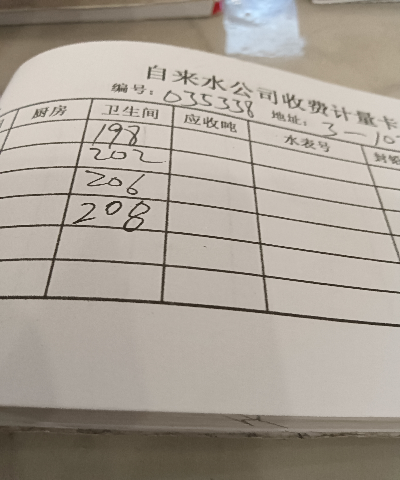 自来水公司收费计量卡
编号: 035338 地址: 3-10
厨房 卫生间 应收吨 水表号
198
202
206
208